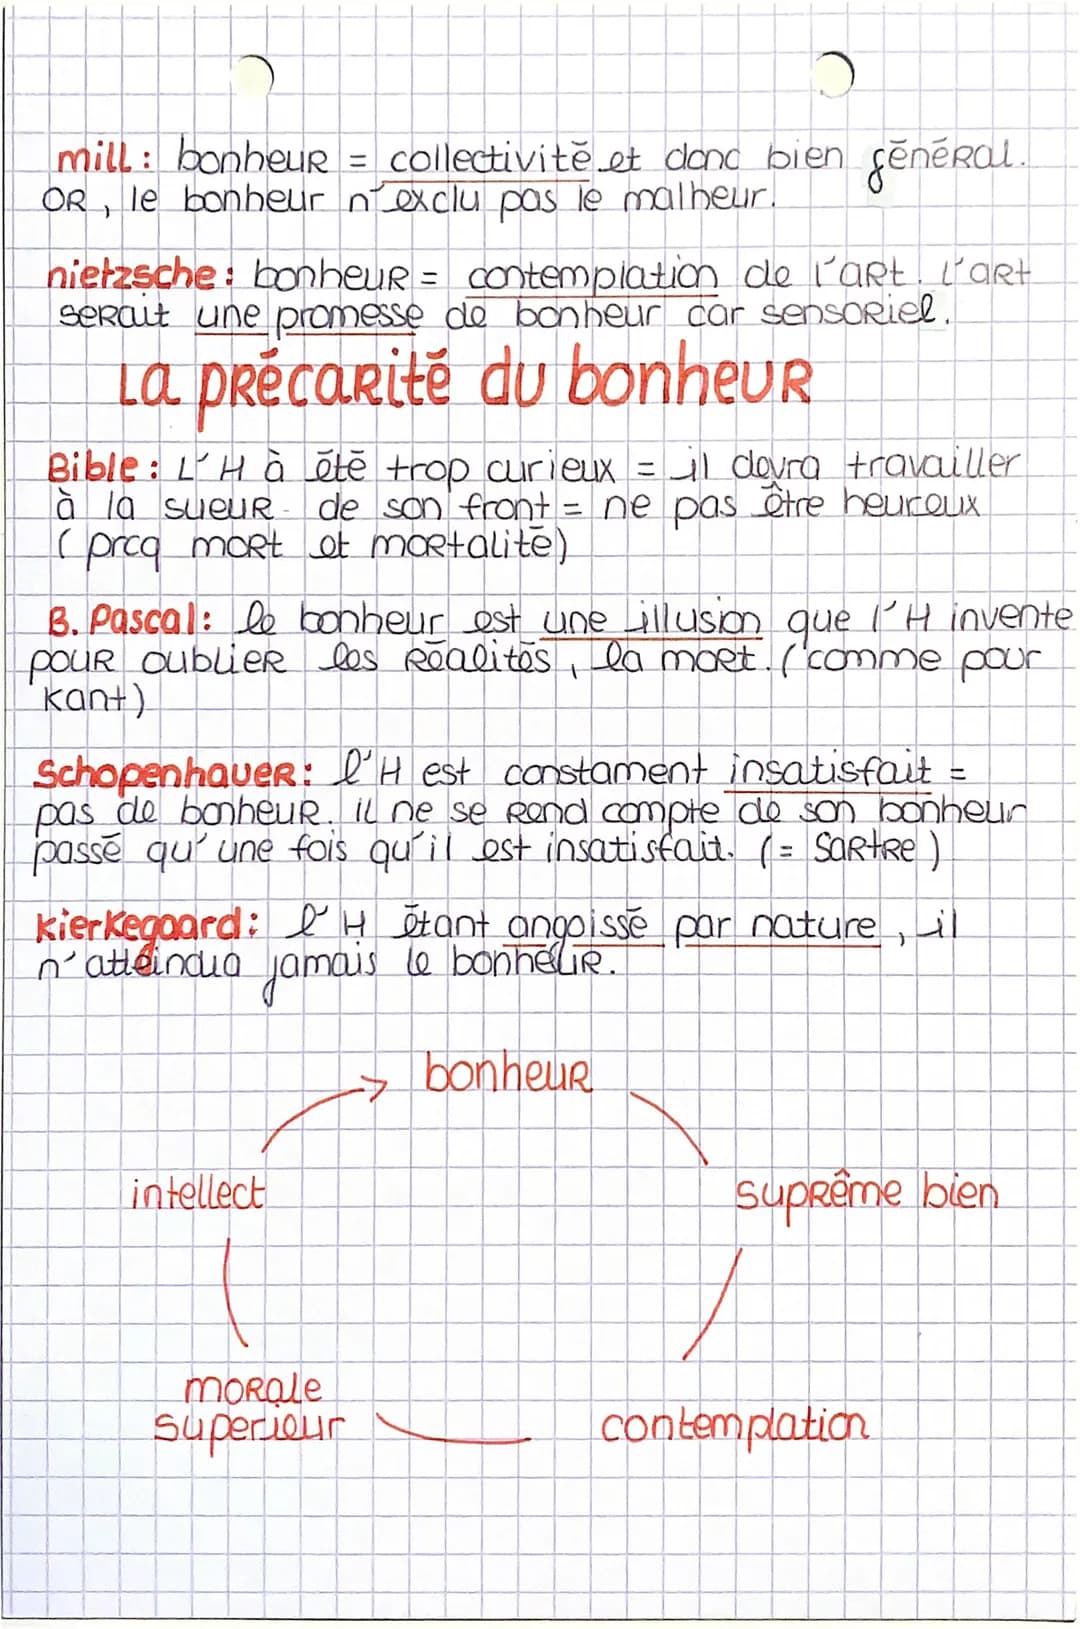 mill : bonheur = collectivité et donc bien général.
OR, le bonheur n'exclu pas le malheur.
nietzsche : bonheur = contemplation de l'art. L'art
serait une promesse de bonheur car sensoriel.
La précarité du bonheur
Bible : L'H à été trop curieux = il devra travailler
à la sueur de son front = ne pas être heureux
(prcq mort et mortalité)
B. Pascal : le bonheur est une illusion que l'H invente
pour oublier les réalités, la mort. (comme pour
kant)
Schopenhauer : l'H est constament insatisfait =
pas de bonheur. il ne se rend compte de son bonheur
passé qu'une fois qu'il est insatisfait. (= Sartre)
Kierkegaard : l'H étant angoissé par nature, il
n'atteindra jamais le bonheur.
bonheur
intellect
suprême bien
morale
superieur
contemplation